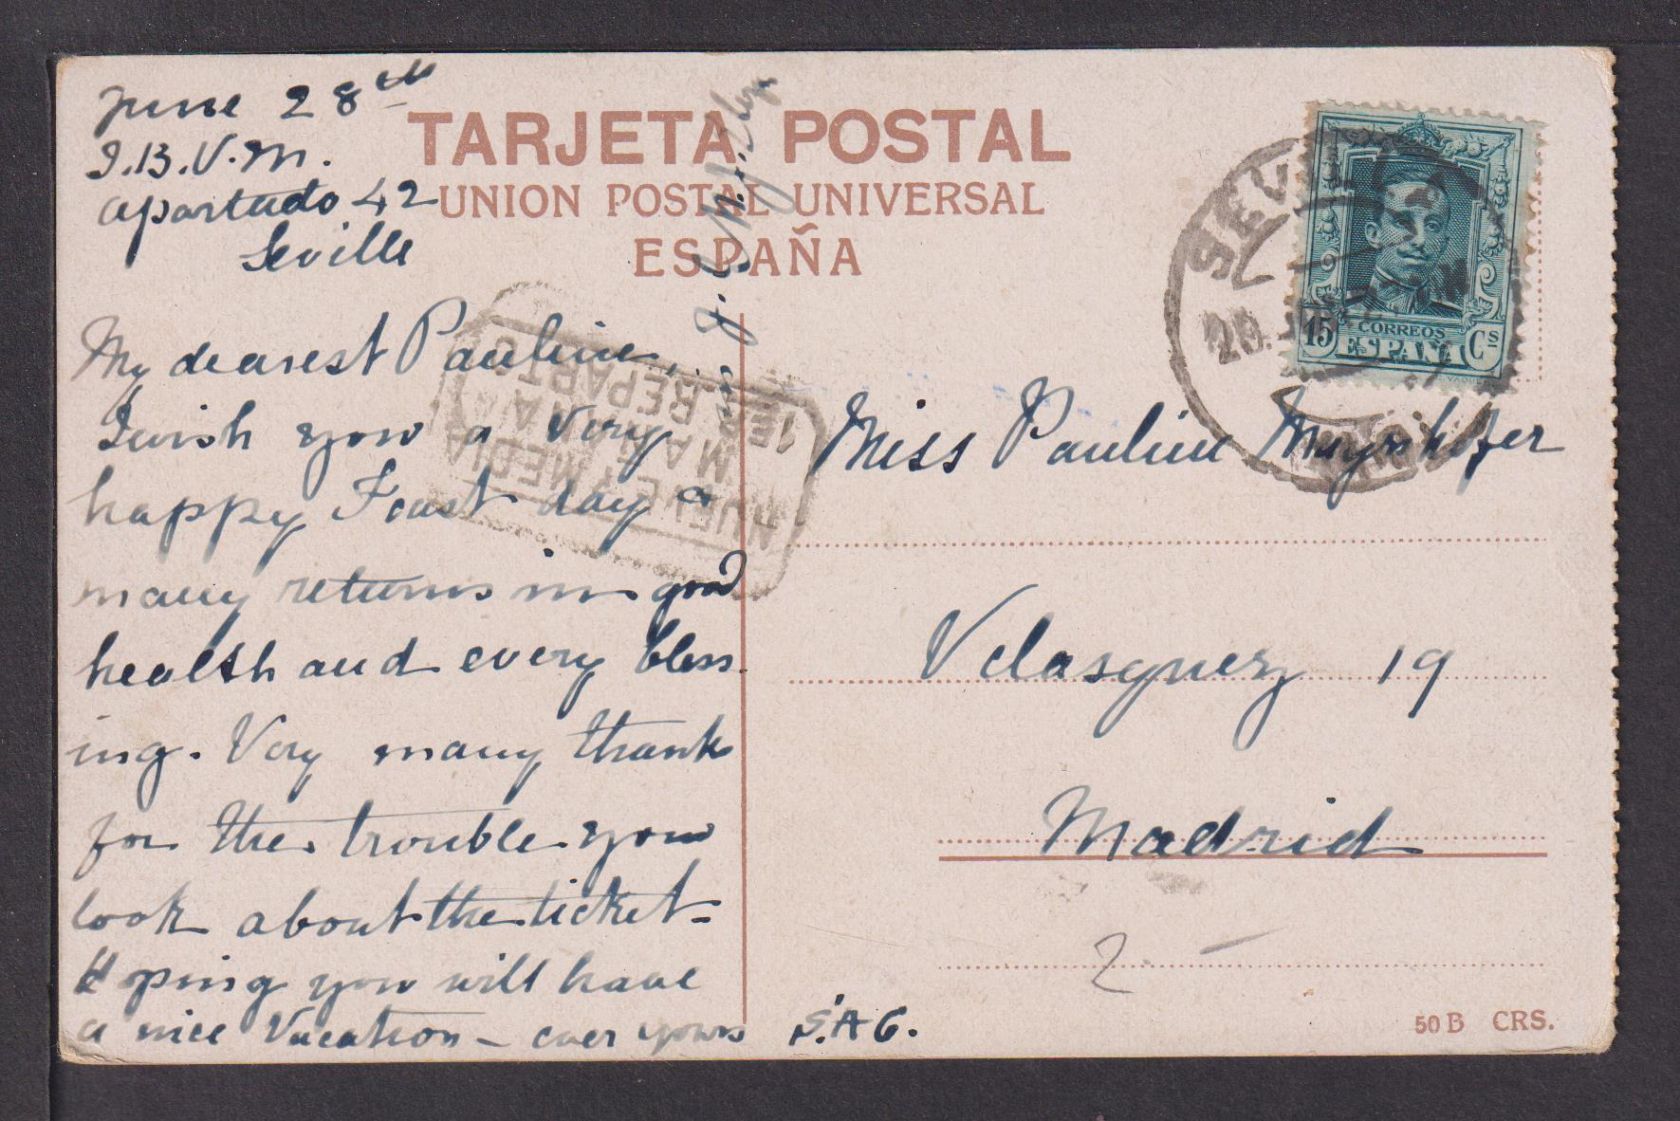 June 28th
I.B.V.M.
apartado 42
Seville
TARJETA POSTAL
UNION POSTAL UNIVERSAL
ESPAÑA
My dearest Pauline,
I wish you a very
happy Feast day &
many returns in good
health and every bless
ing. Very many thank
for the trouble you
look about the ticket-
Hoping you will have
a nice Vacation - ever yours S.A.G.
NUEVE Y MEDIA
MAÑANA
1ER REPARTO
SEVILLA
20
15 CORREOS Cs
ESPAÑA
Miss Pauline Mayrhofer
Velasquez 19
Madrid
2 -
50 B CRS.